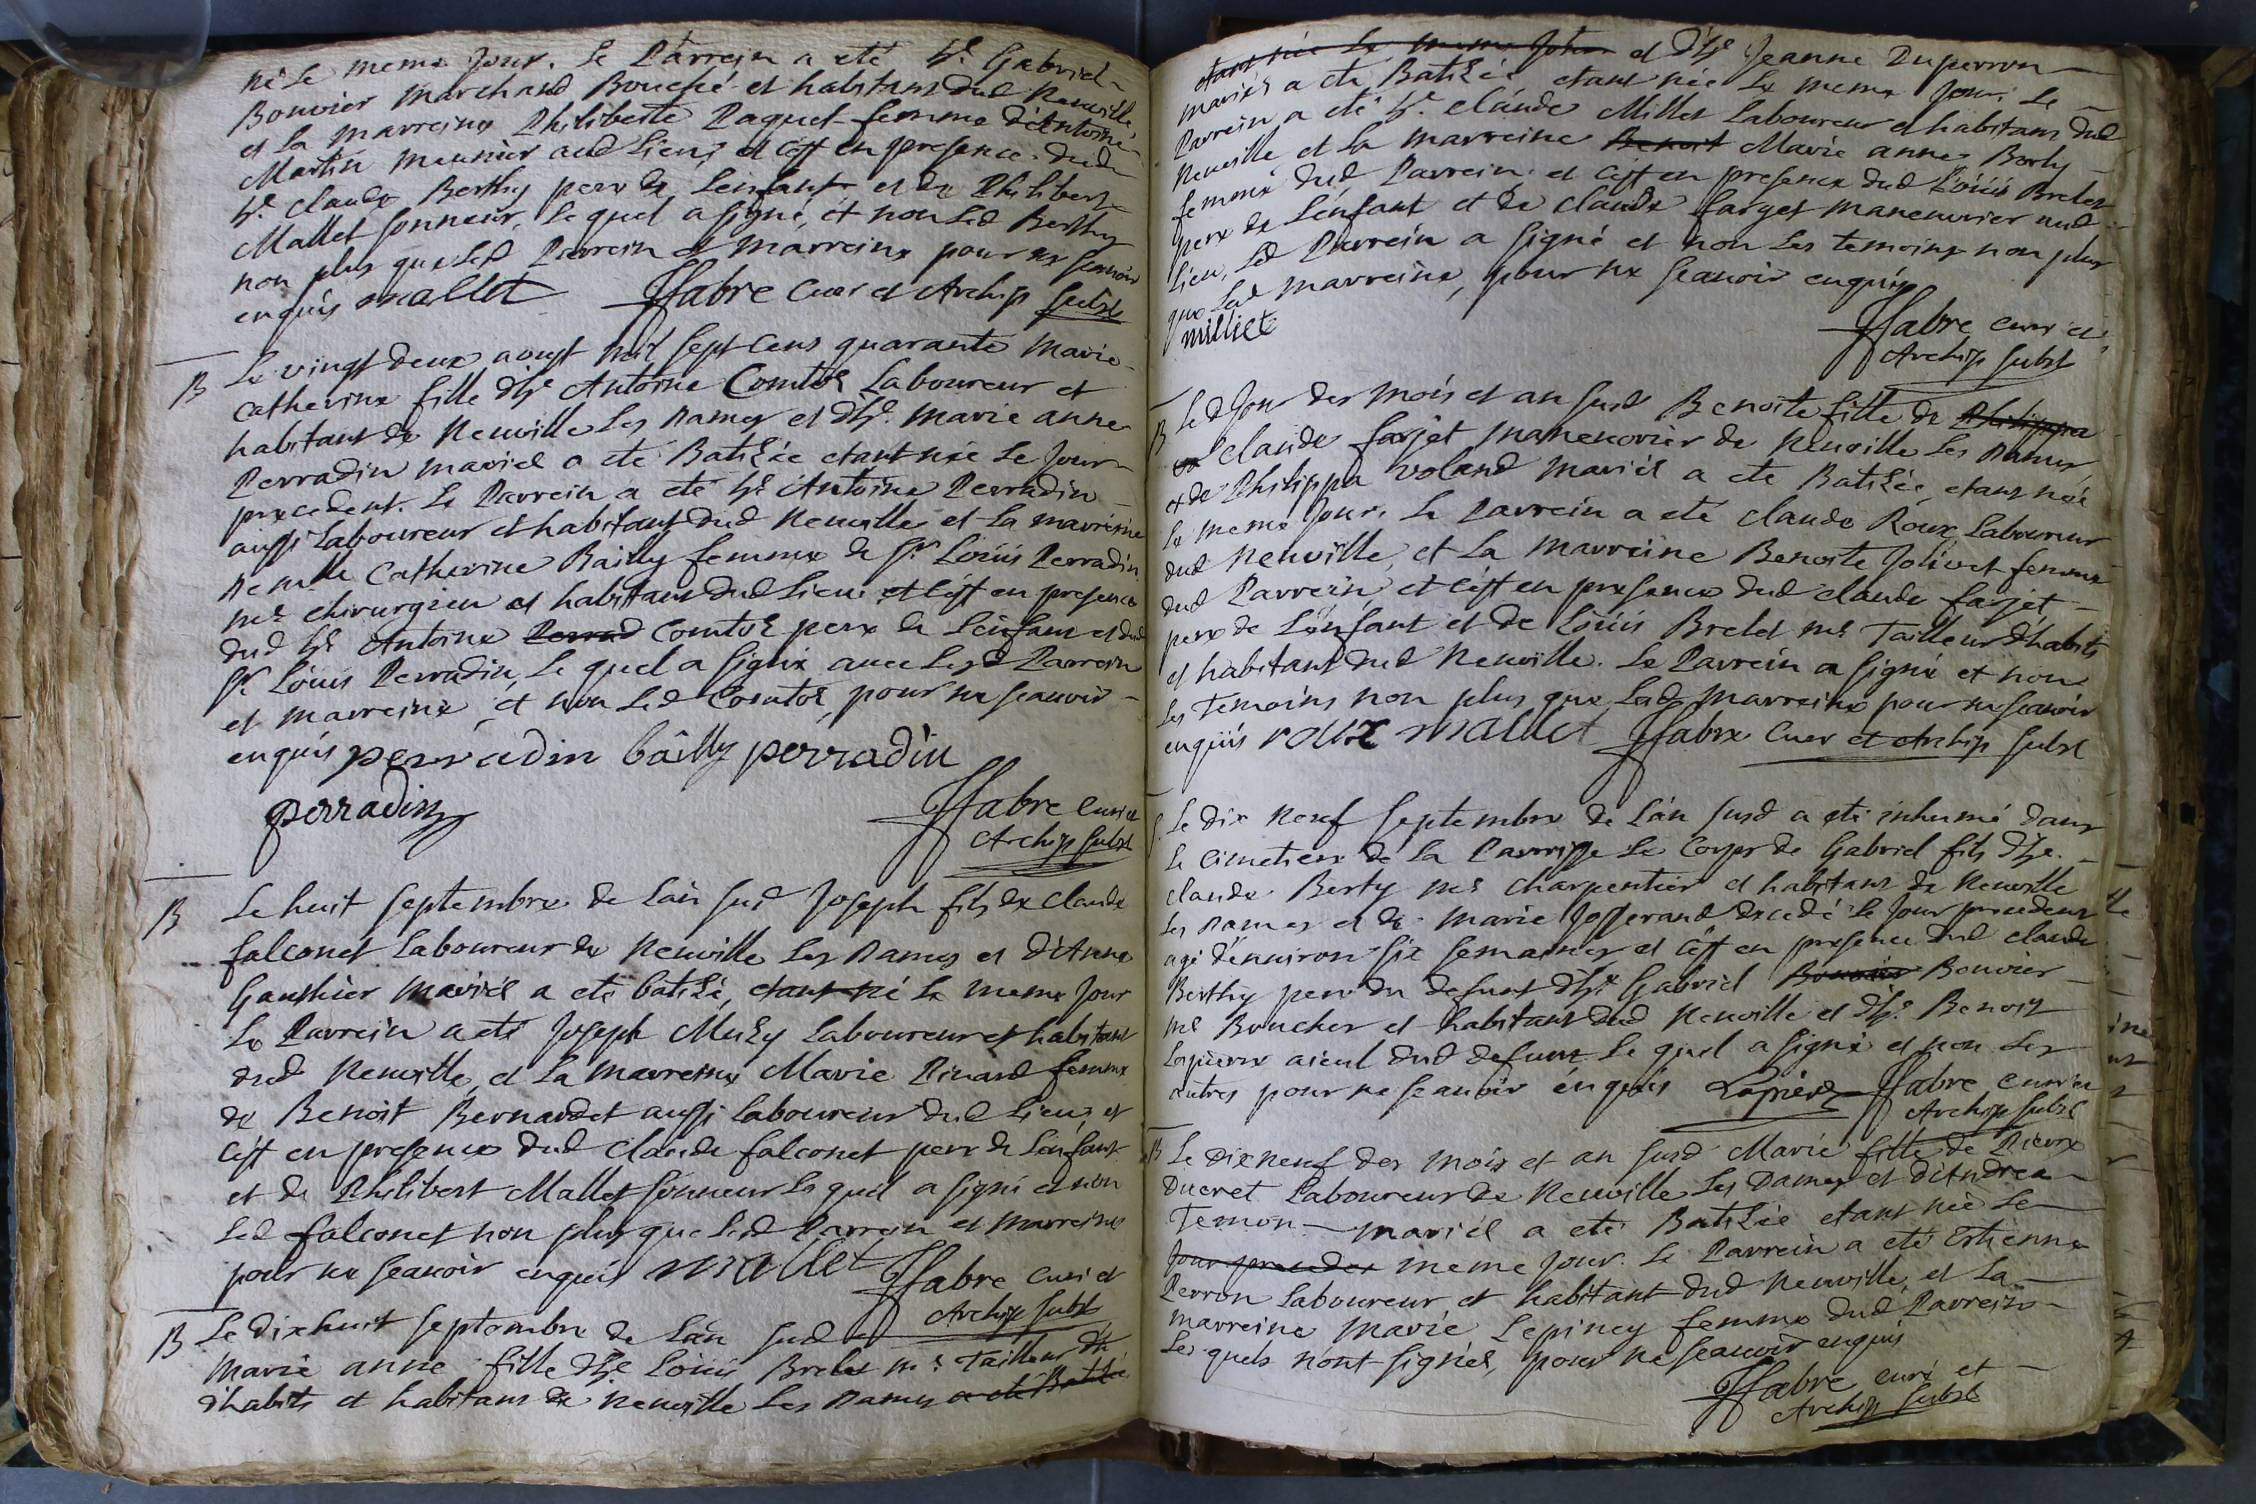 né le meme jour. le Parrein a eté hē. Gabriel
Bouvier marchand Bouché et habitant dud Neuville,
et la marreine Philiberte Paquet femme d'Antoine
Martin meunier aud lieu; et c'est en presence dud
hē. claude Berthy pere de l'enfant et de Philibert
Mallet sonneur, lequel a signé, et non led Berthy
non plus que led Parrein et marreine pour ne sçavoir
enquis mallet ffabre curé et Archip subst
B Le vingt deux aoust mil sept cens quarante Marie
Catherine fille d'hē Antoine Comtet Laboureur et
habitant de Neuville les Dames et d'hē. Marie anne
Perradin mariés a eté Batisée etant née le jour
precedent. Le Parrein a eté hē Antoine Perradin
aussi Laboureur et habitant dud Neuville et la marreine
Demlle Catherine Bailly femme de Sr Loüis Perradin
me chirurgien et habitant dud lieu; et c'est en presence
dud hē Antoine Perrad Comtet pere de l'enfant et dud
Sr Loüis Perradin, le quel a signé avec lesd Parrein
et marreine, et non led Comtet, pour ne sçavoir
enquis perradin bâilly perradin
perradin ffabre curé et
Archip subst
B Le huit septembre de l'an susd Joseph fils de Claude
falconet Laboureur de Neuville les Dames et d'Anne
Gauthier mariés a eté batisé, etant né le meme jour
Le Parrein a eté Joseph Muzy Laboureur et habitant
dud Neuville, et la marreine Marie Pinard femme
de Benoit Bernardet aussi laboureur dud lieu; et
c'est en presence dud claude falconet pere de l'enfant
et de Philibert Mallet sonneur le quel a signé et non
led falconet non plus que lesd Parrein et marreine
pour ne sçavoir enquis mallet ffabre curé et
Archip subst
B Le dixhuit septembre de l'an susd
Marie anne fille d'hē Loüis Brelet me Tailleur d'h
d'habits et habitant de Neuville les Dames a eté Batisée
etant née le meme jour et d'hē Jeanne Duperron
mariés a eté Batisée etant née le meme jour. Le
Parrein a eté hē. claude Millet Laboureur et habitant dud
Neuville et la marreine Benoit Marie anne Borly
femme dud Parrein; et c'est en presence dud Loüis Brelet
pere de l'enfant et de claude farget maneuvrier aud
lieu, led Parrein a signé et non les temoins non plus
que lad marreine, pour ne sçavoir enquis
milliet ffabre curé et
Archip subst
B Led jour des mois et an susd Benoite fille de Philippa
claude farjet maneuvrier de Neuville les Dames,
et de Philippa voland mariés a eté Batisée, etant née
le meme jour. Le Parrein a eté claude Roux Laboureur
dud Neuville, et la marreine Benoite Jolivet femme
dud Parrein, et c'est en presence dud claude farjet
pere de l'enfant et de Loüis Brelet me Tailleur d'habits
et habitant dud Neuville. Le Parrein a signé et non
les temoins non plus que lad marreine pour ne sçavoir
enquis roux mallet ffabre Curé et Archip subst
S. Le dix neuf septembre de l'an susd a eté inhumé dans
le cimetiere de la Parroisse le corps de Gabriel fils d'hē.
claude Berty me charpentier et habitant de Neuville
les Dames et de Marie Josserand decedé le jour precedent
agé d'environ six semaines et c'est en presence dud claude
Berthy pere du defunt d'hē Gabriel Bouvier Bouvier
me Boucher et habitant dud Neuville et d'hē. Benoit
Lapierre aieul dud defunt le quel a signé et non les
autres pour ne sçavoir enquis Lapière ffabre curé et
Archip subst
B Le dixneuf des mois et an susd Marie fille de Pierre
Ducret Laboureur de Neuville les Dames et d'Andrea
Temon mariés a eté Batisée etant née le
jour preceder meme jour. Le Parrein a eté Estienne
Perron laboureur, et habitant dud Neuville, et la
marreine Marie Lepiney femme dud Parrein
les quels n'ont signés, pour ne sçavoir enquis
ffabre curé et
Archip subst